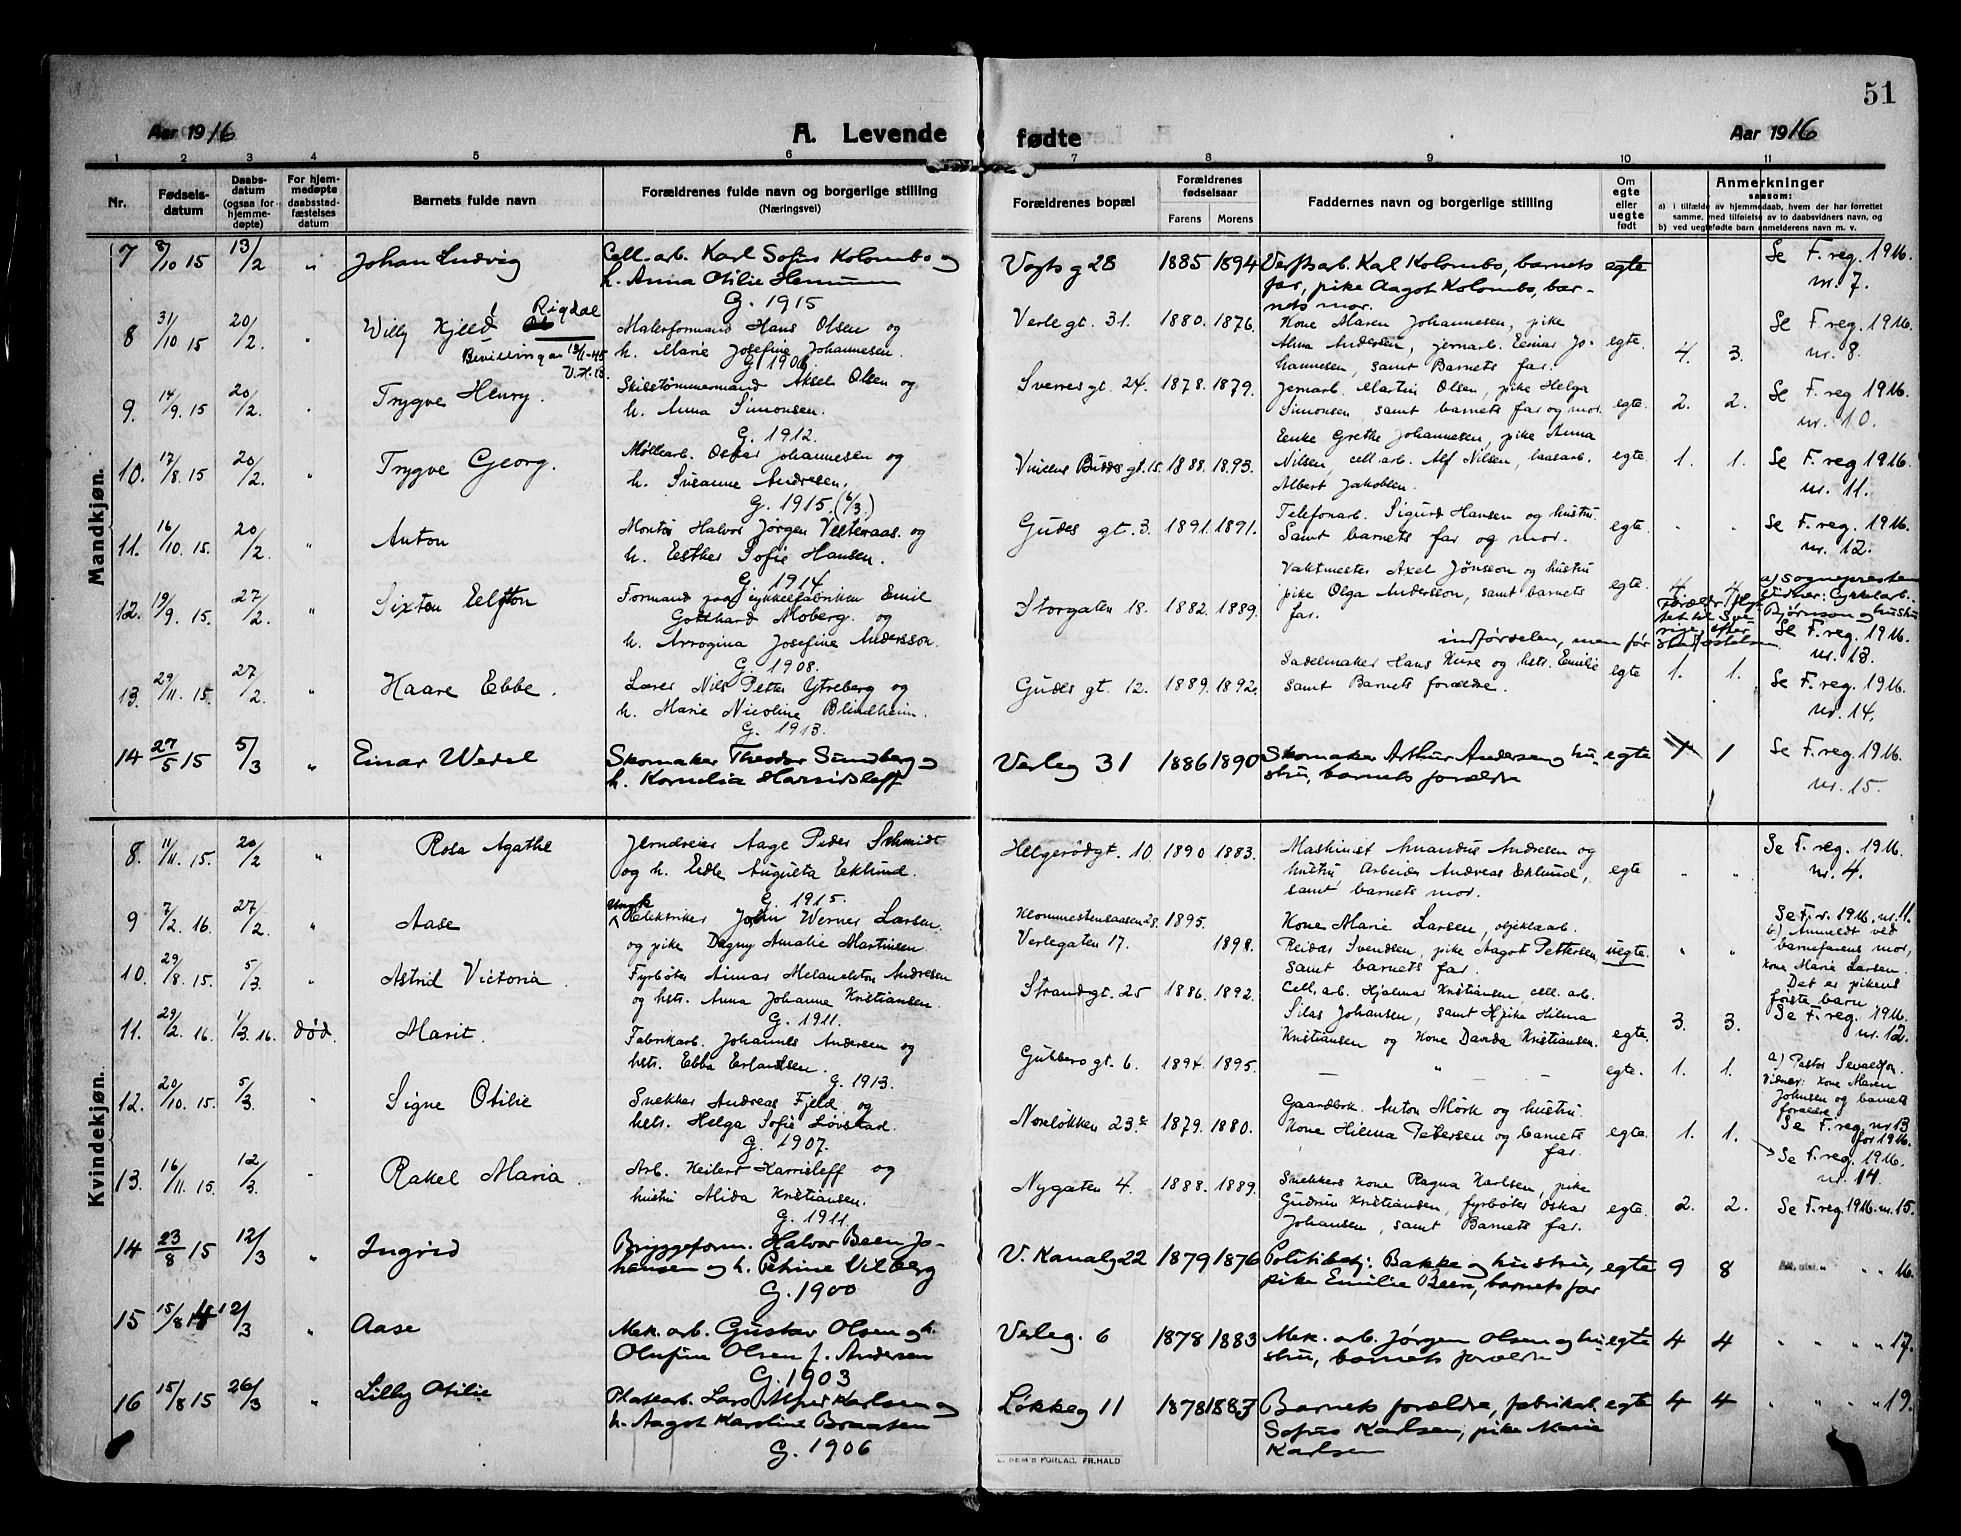 51
Aar 1916 A. Levende fødte Aar 1916
1 2 3 4 5 6 7 8 9 10 11
Nr. Fødsels-datum Daabs-datum (ogsaa for hjemme-døpte) For hjem-medøpte daabsstad-fæstelses datum Barnets fulde navn Forældrenes fulde navn og borgerlige stilling (Næringsvei) Forældrenes bopæl Forældrenes fødselsaar Farens Morens Faddernes navn og borgerlige stilling Om egte eller uegte født Anmerkninger saasom:
a) i tilfælde av hjemmedaab, hvem der har forrettet samme, med tilføielse av to daabsvidners navn, og
b) ved uegtefødte barn anmelderens navn m. v.
Mandkjøn.
7 8/10 15 13/2 " Johan Ludvig Cell. arb. Karl Sofus Kolombo og Vogts g 28 1885 1894 Verftsarb. Karl Kolombo, barnets egte Se F. reg. 1916.
h. Anna Otilie far, pike Aagot Kolombo, bar- nr. 7.
G. 1915 nets mor.
8 31/10 15 20/2. " Willy Kjell Rigdal Malerformand Hans Olsen og Verle gt. 31. 1880. 1876. Kone Maren Johannesen, pike egte. 4. 3. Se F. reg. 1916.
Bevilling h. Marie Josefine Johannesen. Alma Andersen, jernarb. Einar Jo- nr. 8.
G. 1906 hannesen, samt Barnets far.
9. 14/9. 15 20/2. " Trygve Henry. Skibstømmermand Aksel Olsen og Sverres gt. 24. 1878. 1879. Jernarb. Martin Olsen, pike Helga egte. 2. 2. Se F. reg 1916.
h. Anna Simonsen. Simonsen samt barnets far og mor. nr. 10.
G. 1912.
10. 17/8. 15 20/2. " Trygve Georg. Møllearb. Oskar Johannesen og Vincens Buddes gt. 15. 1888. 1893. Enke Grethe Johannesen, pike Anna egte. 1. 1. Se F. reg 1916.
h. Susanne Andresen. Nilsen, cell. arb. Alf Nilsen, laasarb. nr. 11.
G. 1915. (6/3.) Albert Jakobsen.
11. 16/10. 15. 20/2. " Anton Montør Halvor Jørgen Vetteraas. og Gudes gt. 3. 1891. 1891. Telefonarb. Sigurd Hansen og hustru. egte " " Se F. reg. 1916.
h. Esther Sofie Hansen. Samt barnets far og mor. nr. 12.
G. 1914
12. 19/9. 15. 27/2. " Sixten Formand paa Cykkelfabriken Emil Storgaten 18. 1882. 1889. Vaktmester Axel Jönsson og hustru egte. 4. 4. a) Sognepresten
Gotthard Moberg. og pike Olga Andersson, samt barnets Vidner: Cykkelarb.
h. Arrogina Josefine Andersson. far. Bjørnson og hustru
G. 1908. indførselen, men før Se F. reg. 1916.
nr. 13.
13. 29/11. 15. 27/2. " Haare Ebbe. Lærer Nils Petter Ytreberg og Gudes gt. 12. 1889. 1892. Sadelmaker Hans Kure og hstr. Emilie egte 1. 1. Se F. reg. 1916.
h. Marie Nicoline Blindheim. samt Barnets forældre. nr. 14.
G. 1913.
14 27/5 15 5/3 " Einar Wedel Skomaker Theodor Sundberg og Verleg 31 1886 1890 Skomaker Arthur Andersen og hu- egte 1 1 Se F. reg. 1916.
h. Kornelia Harridsleff stru, barnets forældre nr. 15.
Kvindekjøn.
8. 11/11. 15. 20/2 " Rosa Agathe Jerndreier Aage Peder Schmidt Helgerødgt. 10 1890 1883. Maskinist Amandus Andresen og egte " " Se F. reg. 1916.
og h. Edle Augusta Eklund. hustru, Arbeider Andreas Eklund, nr. 4.
G. 1915. samt barnets mor.
9 7/2. 16. 27/2. " Aase Ungk. Elektriker John Werner Larsen Klommestensaasen 28. 1895. Kone Marie Larsen, oljeklaarb. uegte. " " Se F. r. 1916. nr. 11.
og pike Dagny Amalie Martinsen. Verlegaten 17. 1898. Reidar Svendsen, pike Aagot Pettersen, b) Anmeldt ved
samt barnets far. barnefarens mor,
kone Marie Larsen.
Det er pikens
første barn
10. 29/8. 15. 5/3. " Astrid Victoria. Fyrbøter Aimar Melanchton Andresen Strandgt. 25 1886. 1892. Cell. arb. Hjalmar Kristiansen, cell. arb. egte 3. 3. Se F. reg. 1916.
og hstr. Anna Johanne Kristiansen. Silas Johansen, samt pike Hilma nr. 12.
G. 1911. Kristiansen og Kone Davida Kristiansen.
11. 29/2. 16. 1/3. 16. død. Marit. Fabrikarb. Johannes Andersen og Gubbero gt. 6. 1894. 1895. — " — egte. 1. 1. a) Pastor Sevaldson.
hstr. Ebba Erlandsen. Vidner: Kone Maren
G. 1913. Johnsen og barnets
forældre
12. 20/10. 15. 5/3. " Signe Otilie Snekker Andreas Fjeld, og Norløkken 23. 1879. 1880. Gaardbrk. Anton Mørk og hustru. egte. 1. 1. Se F. reg. nr 13
hstr. Helga Sofie Løvstad. Kone Hilma Petersen og barnets for 1916.
G. 1907. far.
13. 16/11. 15. 12/3. " Rakel Maria. Arb. Keilert Harrisleff og Nygaten 4. 1888. 1889. Snekkers kone Ragna Karlsen, pike egte. 2. 2. Se F. reg. 1916.
hustru Alida Kristiansen. Gudrun Kristiansen, fyrbøter Oskar nr. 14.
G. 1911. Johansen, samt Barnets far. Se F. reg. 1916. nr. 15.
14 23/8 15 12/3 " Ingrid Bryggeform. Halvor Been Jo- V. Kanalg 22 1879 1876 Politibetj. Bakke og hustru, egte 9 8 " " " 16.
hansen og h. Petrine Vilberg pike Emilie Been, barnets far
G. 1900
15 15/8 15 12/3 " Aase Mek. arb. Gustav Olsen og h. Verleg. 6 1878 1883 Mek. arb. Jørgen Olsen og hu- egte 4 4 " " " 17.
Olufine Olsen f. Andersen stru, barnets forældre
G. 1903
16 15/8 15 26/3 " Lilly Otilie Plattarb. Lars Alfred Karlsen og Løkkeg 11 1878 1883 Barnets forældre, fabrikarb. egte 4 4 " " " 19.
h. Aagot Karoline Braaten Sofus Karlsen, pike Marie
G. 1906 Karlsen
SEM'S FORLAG, FR.HALD